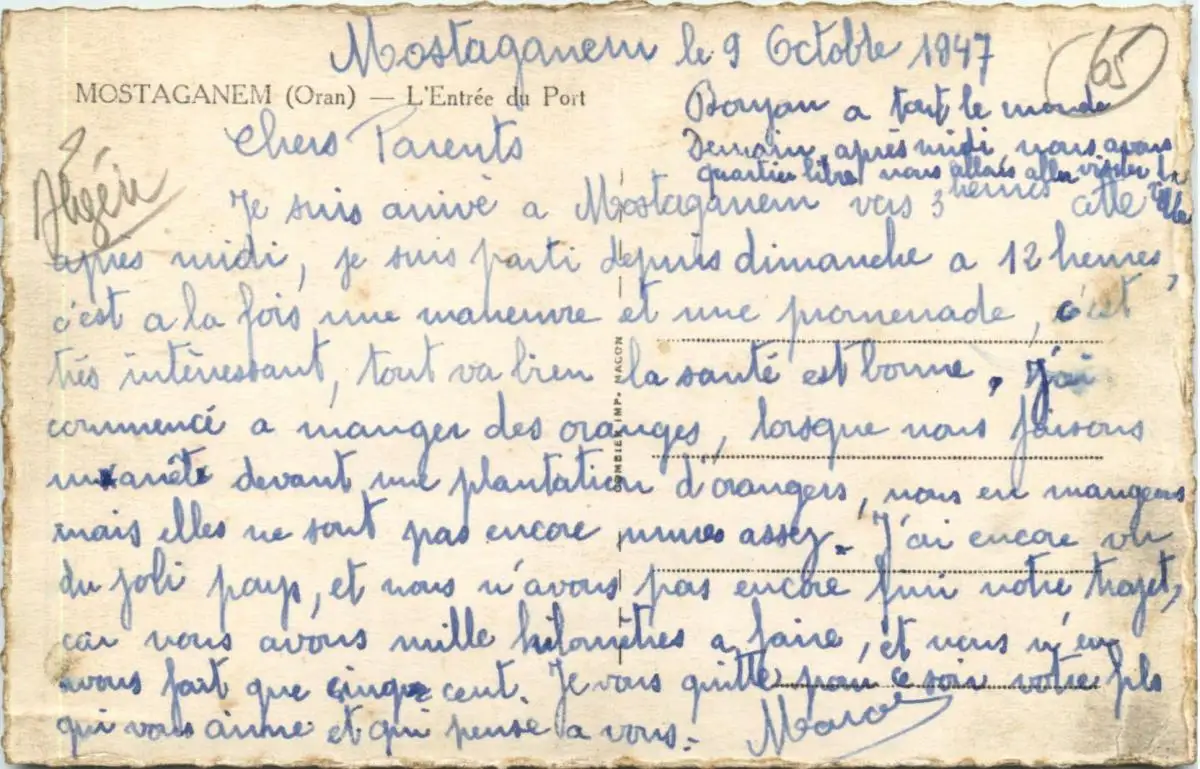 Mostaganem le 9 Octobre 1947
65
MOSTAGANEM (Oran) — L'Entrée du Port
Bonjour a tout le monde
Demain après midi nous avons
quartier libre nous allons aller visiter la
ville
Chers Parents
Algérie
Je suis arrivé a Mostaganem vers 3 heures cette
après midi, je suis parti depuis dimanche a 12 heures,
c'est a la fois une maneuvre et une promenade, c'est
très intèressant, tout va bien la santé est bonne, J'ai
commencé a manger des oranges, lorsque nous faisons
un arrêt devant une plantation d'orangers, nous en mangeons
mais elles ne sont pas encore mures assez. J'ai encore vu
du joli pays, et nous n'avons pas encore fini notre trajet,
car nous avons mille kilomètres a faire, et nous n'en
avons fait que cinq cent. Je vous quitte pour ce soir votre fils
qui vous aime et qui pense a vous.
COMBIER IMP. MACON